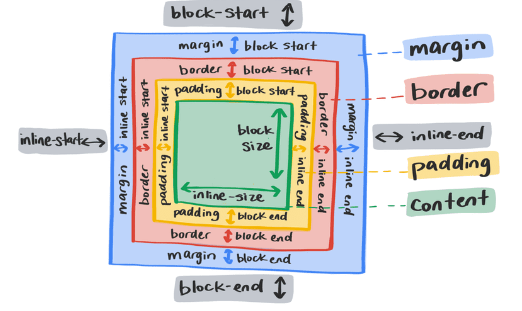 block-start
margin block start
margin
border block start
border
padding block start
inline-start
margin inline start
border inline start
padding inline start
block
size
inline-size
padding inline end
border inline end
margin inline end
inline-end
padding
content
padding block end
border block end
margin block end
block-end